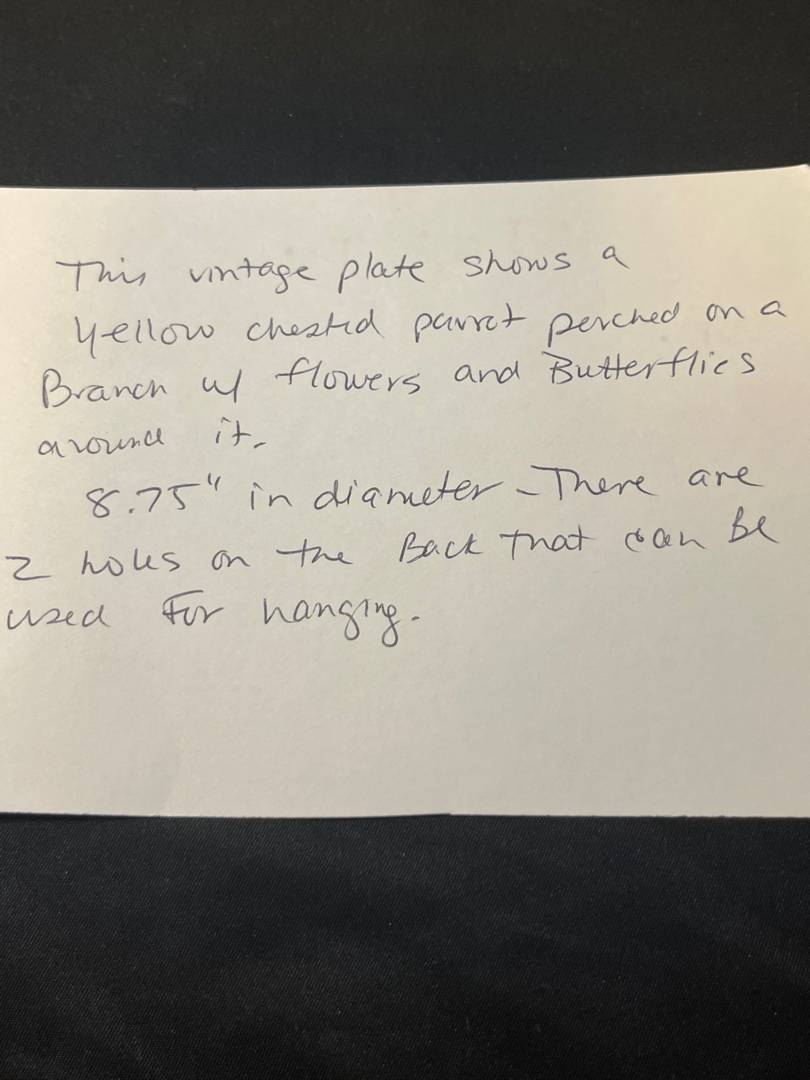 This vintage plate shows a
yellow chested parrot perched on a
Branch w/ flowers and Butterflies
around it.
8.75" in diameter - There are
2 holes on the Back that can be
used for hanging.